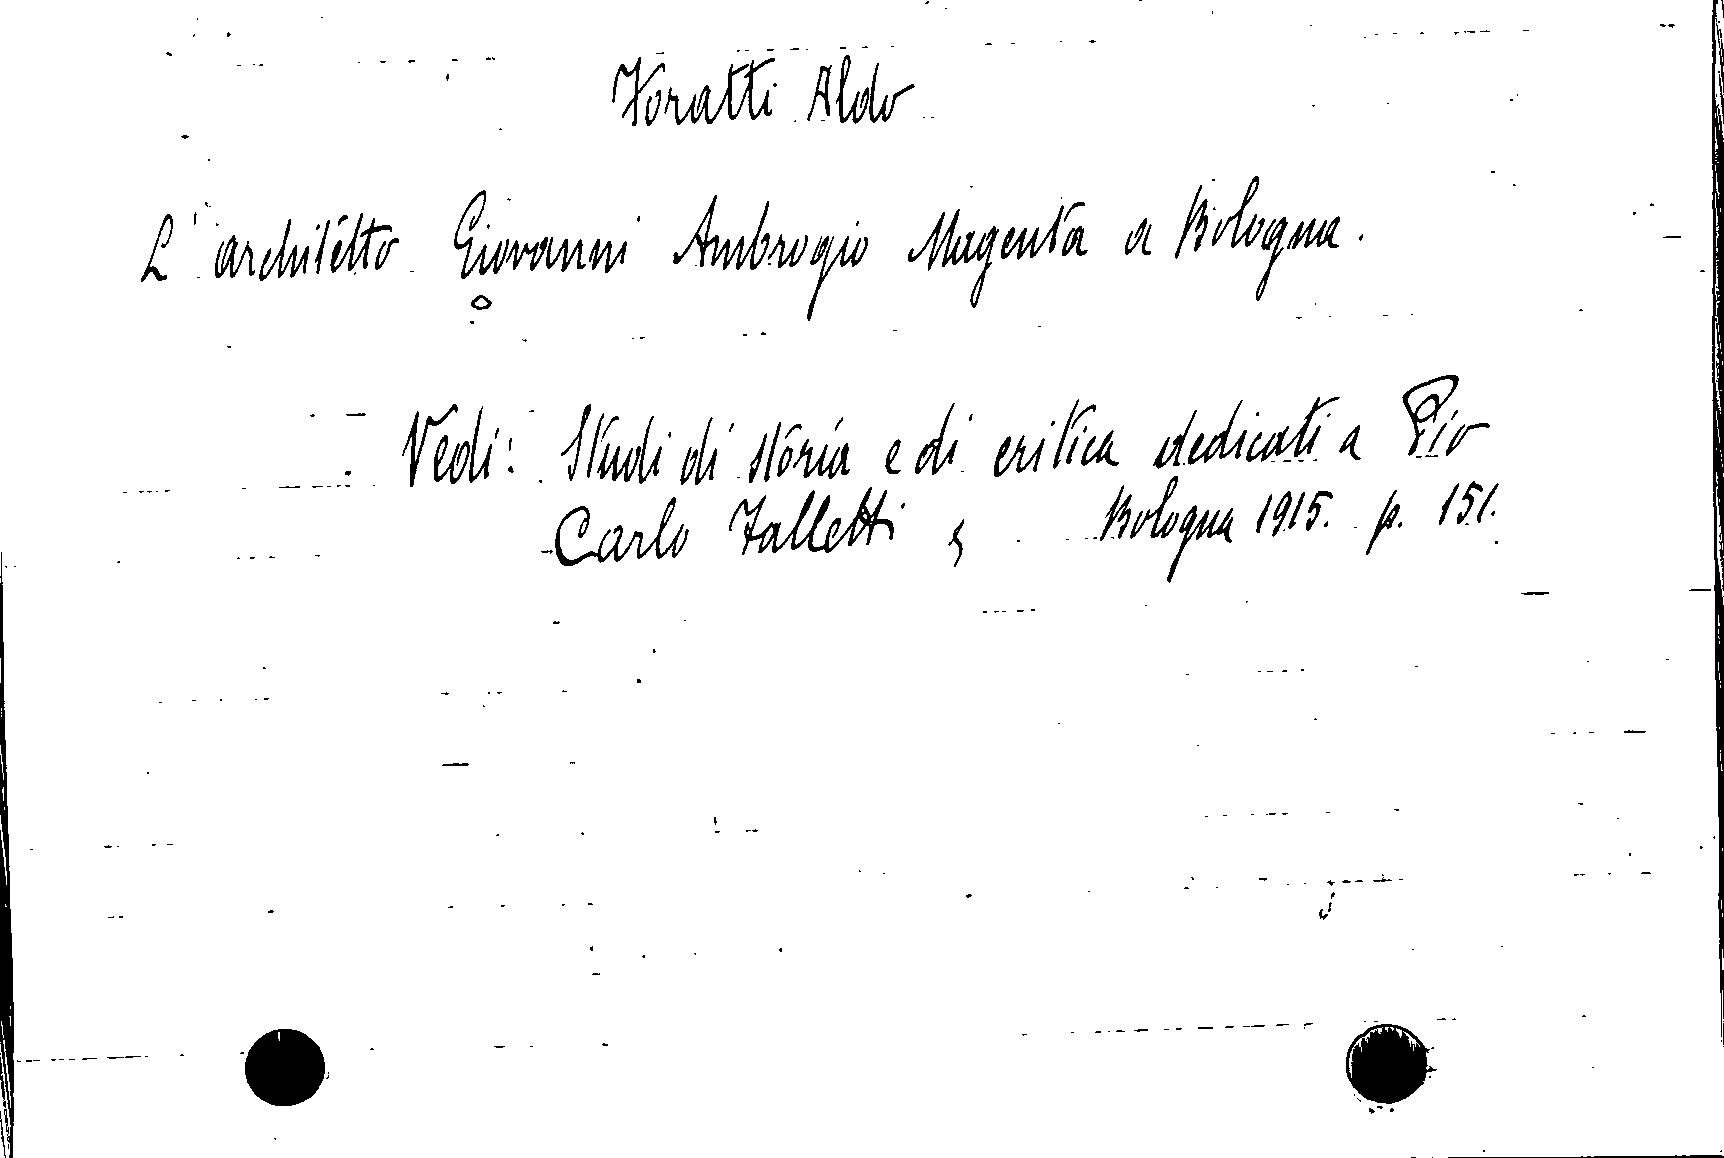 Foratti Aldo
L'architetto Giovanni Ambrogio Magenta a Bologna.
Vedi: Studi di storia e di critica dedicati a Pio
Carlo Falletti, Bologna 1915. p. 151.